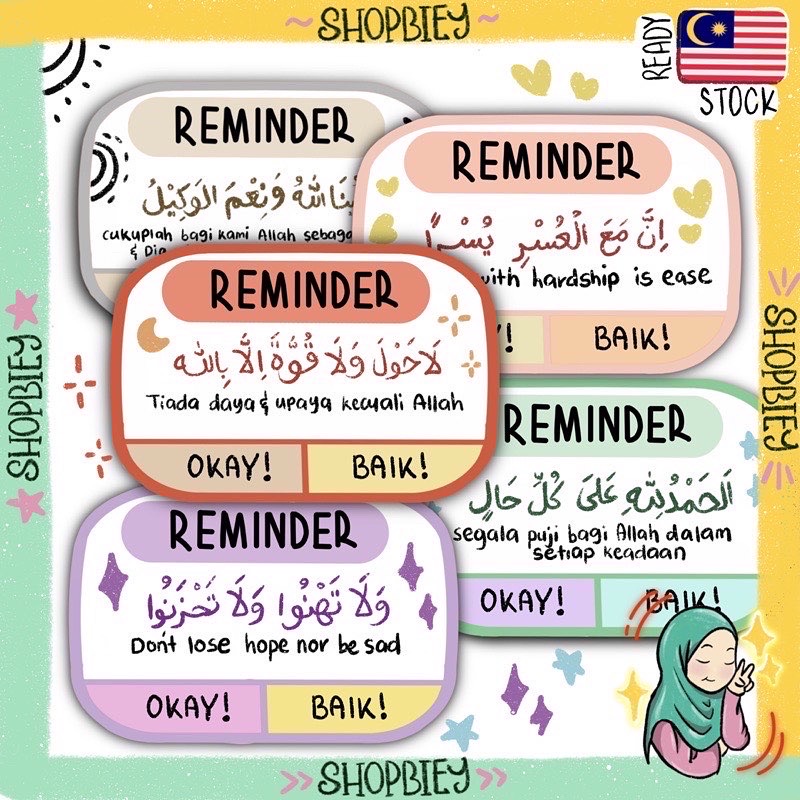 ~ SHOPBIEY ~
READY
STOCK
REMINDER
وَنِعْمَ الْوَكِيْلُ
cukuplah bagi kami Allah
&
REMINDER
اِنَّ مَعَ الْعُسْرِ يُسْرًا
with hardship is ease
BAIK!
REMINDER
لَا حَوْلَ وَلَا قُوَّةَ اِلَّا بِالله
Tiada daya & upaya kecuali Allah
OKAY!
BAIK!
REMINDER
اَلْحَمْدُلِلهِ عَلَى كُلِّ حَالٍ
segala puji bagi Allah dalam
setiap keadaan
OKAY!
BAIK!
REMINDER
وَلَا تَهْنُوا وَلَا تَحْزَنُوا
Don't lose hope nor be sad
OKAY!
BAIK!
SHOPBIEY
SHOPBIEY
>> SHOPBIEY >>